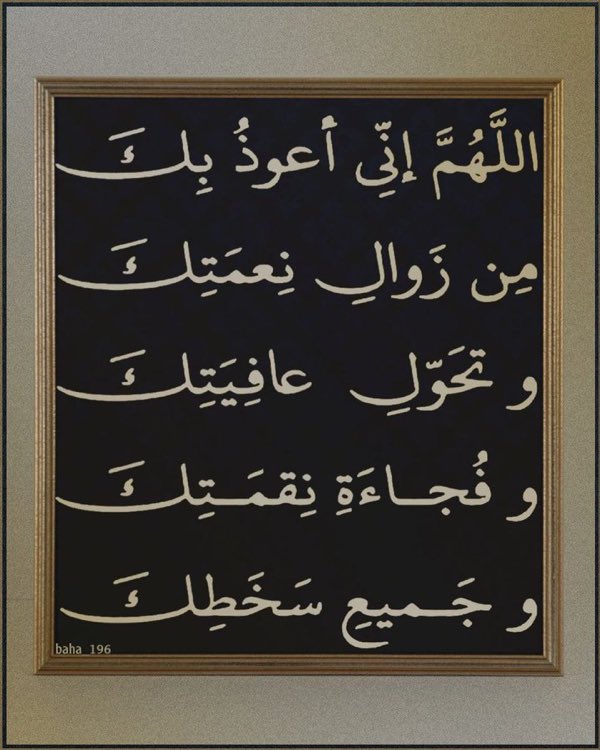 اللَّهُمَّ إنِّي أعوذُ بِكَ
مِن زَوالِ نِعمَتِكَ
و تحَوّلِ عافِيَتِكَ
و فُجاءَةِ نِقمَتِكَ
و جَميعِ سَخَطِكَ
baha_196